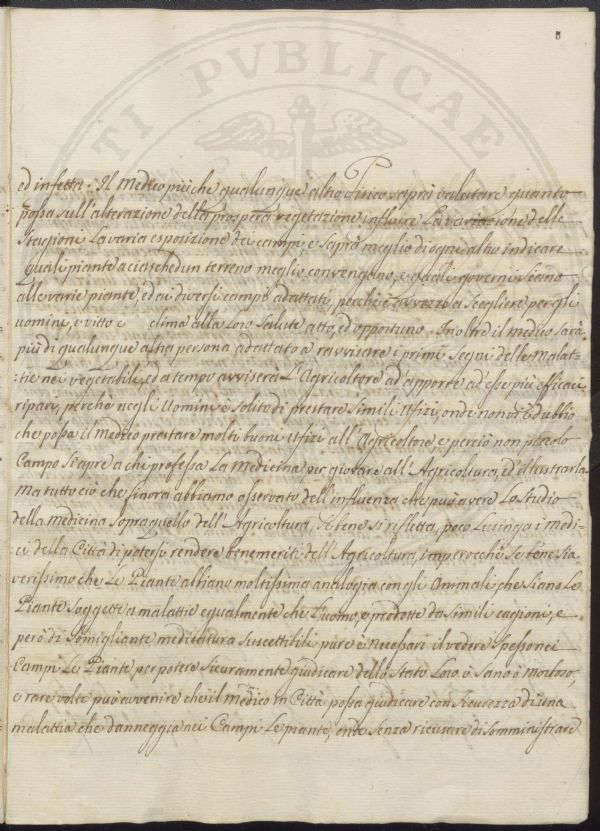 TI PVBLICAE
5
ed infetta. Il Medico più che qualunque altro Fisico saprà valutare quanto
possa sull'alterazione della prospera vegetazione influire La variazione delle
Stagioni La varia esposizione dei campi e saprà meglio di ogni altro indicare
quali piante a ciaschedun terreno meglio convengano, e quali governi siano
alle varie piante, ed ai diversi campi adattati, perchè è avvezzo a scegliere per gli
uomini, e vitto e clima alla Loro Salute atto, ed opportuno. Inoltre il medico sarà
più di qualunque altra persona adattato a ravvisare i primi Segni delle Malat-
:tie nei vegetabili, ed a tempo avviserà L'Agricoltore ad apporre ad esse più efficaci
ripari, perchè negli Uomini è Solito di prestare Simili Ufizi, onde non v'è dubbio
che possa il Medico prestare molti buoni Ufizi all'Agricoltore e perciò non piccolo
Campo Si apre a chi professa La medicina per giovare all'Agricoltura, ed illustrarla
Ma tutto ciò che finora abbiamo osservato dell'influenza che può avere Lo Studio
della medicina Sopra quello dell'Agricoltura, Se bene Si rifletta, poco Lusinga i medi-
:ci della Città di potersi rendere benemeriti dell'Agricoltura, imperocchè Se bene Sia
verissimo che Le Piante abbiano moltissima analogia con gli Animali, che Siano Le
Piante Soggette a malattie egualmente che L'uomo, e prodotte da Simili cagioni, e
però di Somigliante medicatura Suscettibili pure è necessari il vedere Spesso nei
Campi Le Piante per potere Sicuramente giudicare dello Stato Loro ò Sano ò Morboso,
e rare volte può avvenire che il medico in Città possa giudicare con Sicurezza di una
malattia che danneggia nei Campi Le piante, onde Senza ricusare di Somministrare